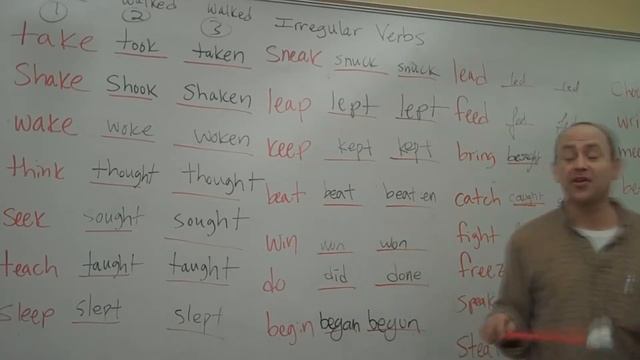 1 2 3
walked walked Irregular Verbs
take took taken
Shake Shook Shaken
wake woke woken
think thought thought
Seek sought sought
teach taught taught
Sleep slept slept
Sneak snuck snuck
leap lept lept
keep kept kept
beat beat beaten
win won won
do did done
begin began begun
lead led led
feed fed
bring
catch caught
fight
freez
speak
Steal